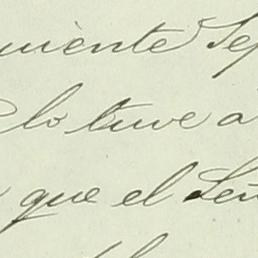 uiente Se
lo tuve a
que el Señ